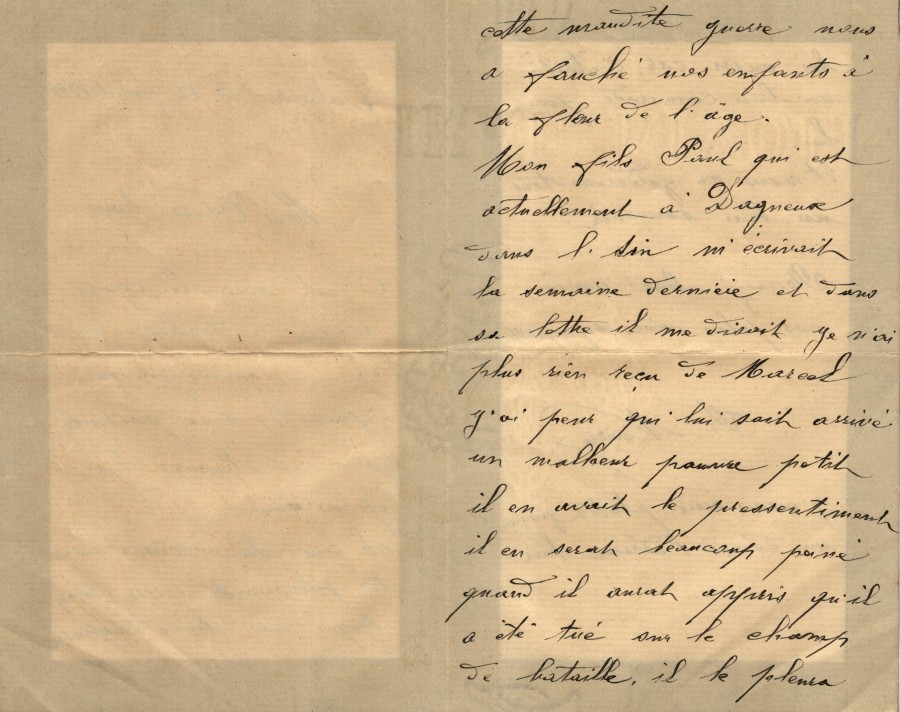 cette maudite guerre nous
a fauché nos enfants à
la fleur de l'âge.
Mon fils Paul qui est
actuellement à Dagneux
dans l'Ain m'écrivait
la semaine dernière et dans
sa lettre il me disait je n'ai
plus rien reçu de Marcel
j'ai peur qui lui soit arrivé
un malheur pauvre petit
il en avait le pressentiment
il en serat beaucoup peiné
quand il aurat appris qu'il
a été tué sur le champ
de bataille, il le pleura